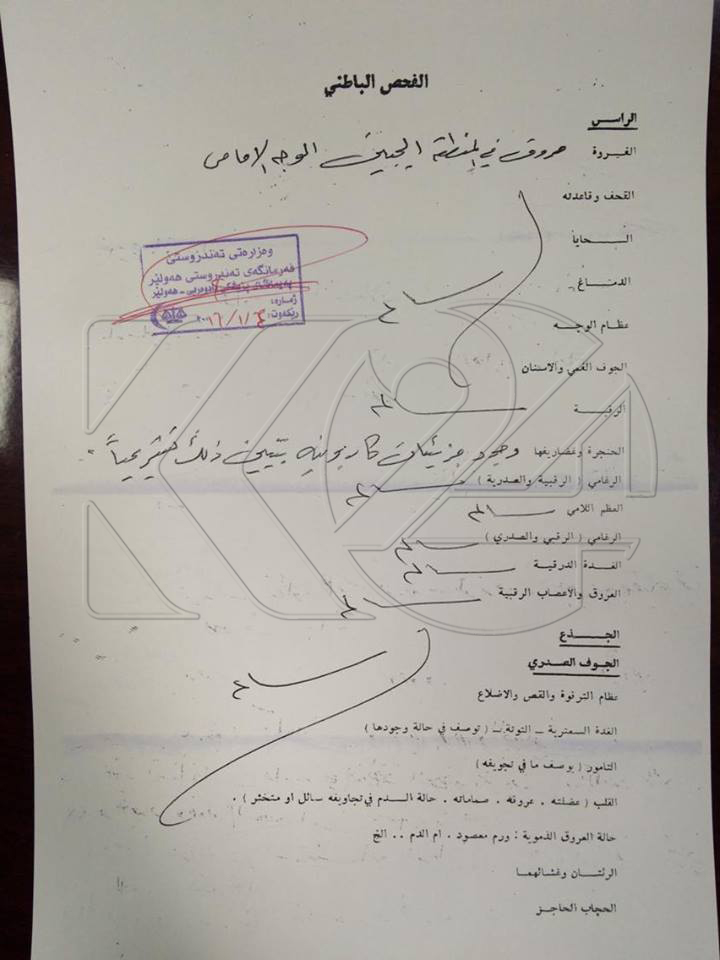 الفحص الباطني
الراس
الفروة حروق في المنطقة الجبين الوجه الامامي
القحف وقاعدته
السحايا
الدماغ سالم
عظام الوجه
الجوف الفمي والاسنان
الرقبة سالم
الحنجرة وغضاريفها وجود جزيئات كاربونية يتبين ذلك تشريحياً
الرغامي ( الرقبية والصدرية ) سالم
العظم اللامي سالم
الرغامي ( الرقبي والصدري ) سالم
الغدة الدرقية سالم
العروق والاعصاب الرقبية سالم
وەزارەتی تەندروستی
فەرمانگەی تەندروستی هەولێر
پەیمانگای پزیشکی دادوەری - هەولێر
ژمارە:
رێکەوت: ٢٠١٦/١/٤
الجذع
الجوف الصدري
عظام الترقوة والقص والاضلاع سالم
الغدة السعترية ـ التوتة ـ ( توصف في حالة وجودها )
التامور ( يوصف ما في تجويفه )
القلب ( عضلته . عروقه . صماماته . حالة الدم في تجاويفه سائل او متخثر ) .
حالة العروق الدموية : ورم معصود . ام الدم .. الخ
الرئتان وغشائهما
الحجاب الحاجز
K24